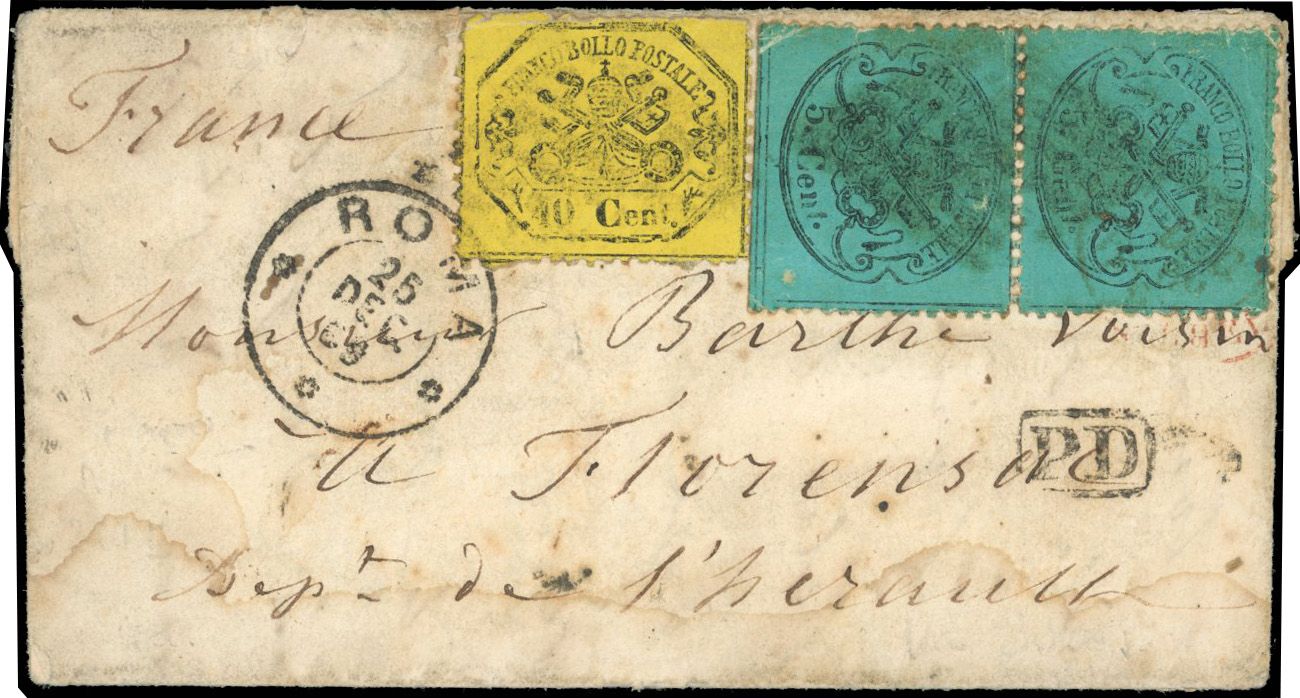 France
FRANCO BOLLO POSTALE
10 Cent.
FRANCO BOLLO POSTALE
5 Cent.
FRANCO BOLLO POSTALE
ROMA
25
DEC
Monsieur Barthe Voisin
à Florensac
PD
Dept de l'herault